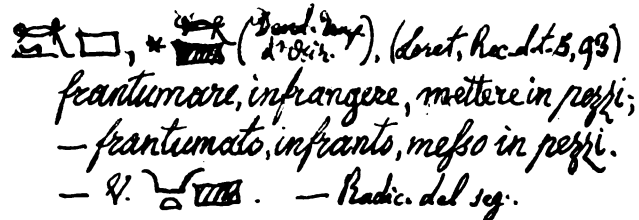 , * (Dend. Temp. d'Osir.), (Loret, Rec. d. t. 5, 93)
frantumare, infrangere, mettere in pezzi;
— frantumato, infranto, messo in pezzi.
— V. . — Radic. del seg.